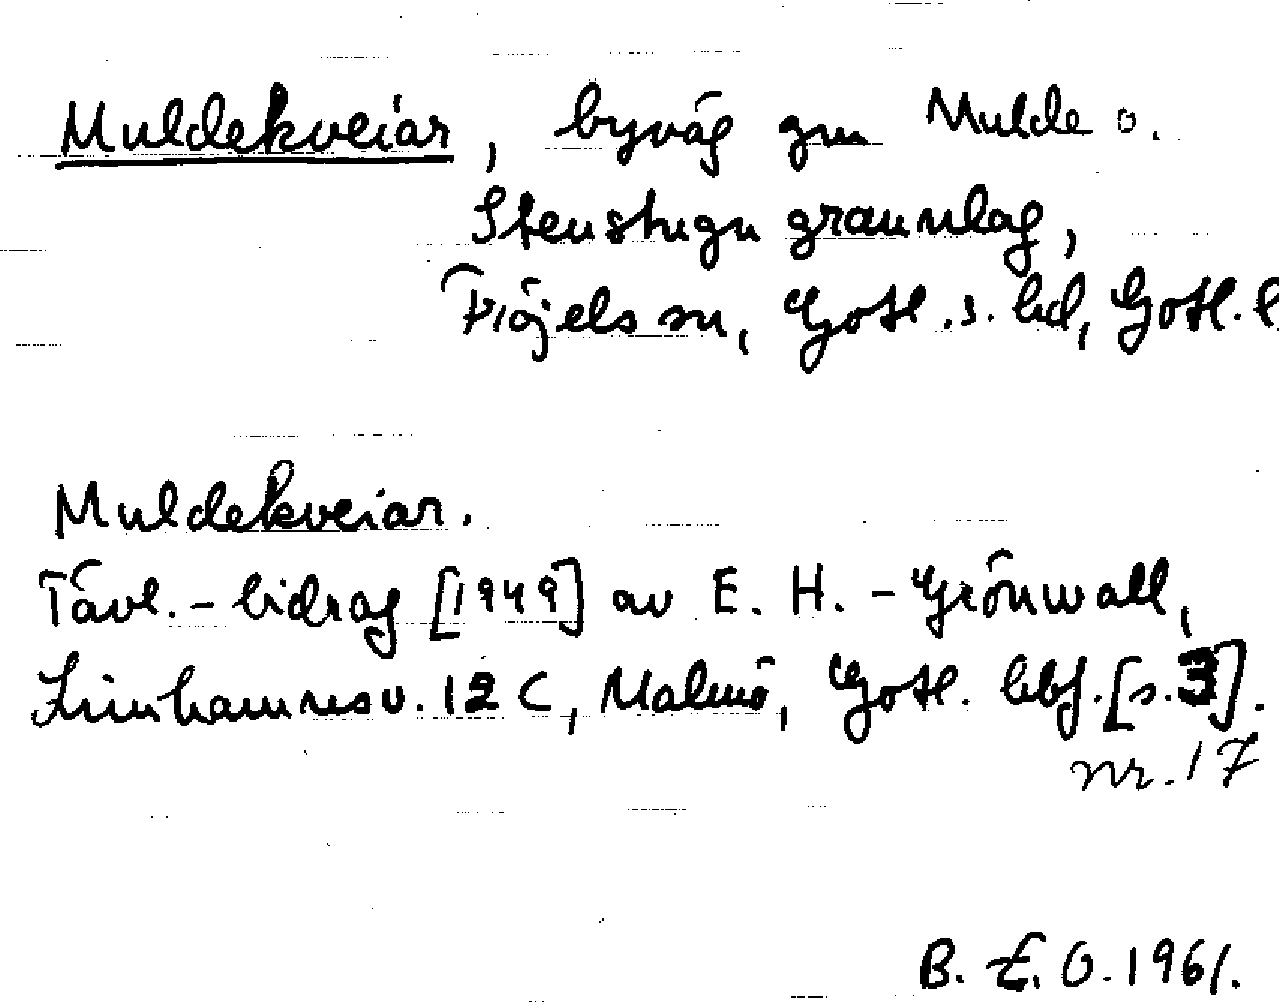 Muldekveiar, byväg gm Mulde o.
Stenstugu grannlag,
Fröjels sn, Gotl. s. hd, Gotl. l
Muldekveiar.
Tävl.-bidrag [1949] av E. H.-Grönwall,
Limhamnsv. 12 C, Malmö, Gotl. lbf. [s. 3].
nr. 17
B. E. O. 1961.